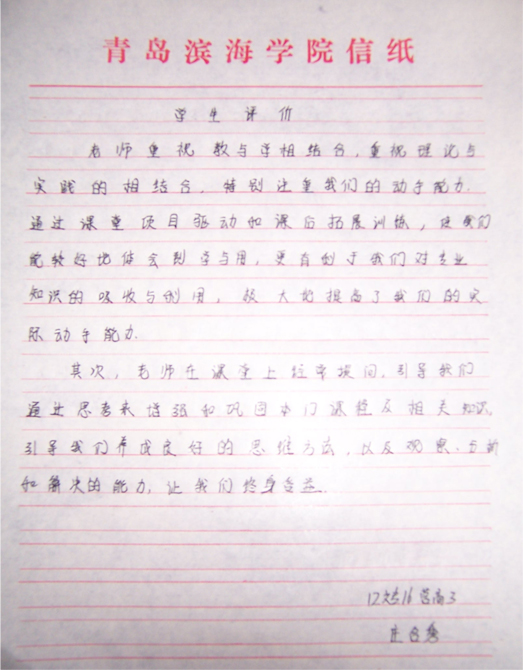 青岛滨海学院信纸
学生评价
老师重视教与学相结合，重视理论与
实践的相结合，特别注重我们的动手能力.
通过课堂项目驱动和课后拓展训练，使我们
能较好地体会到学与用，更有利于我们对专业
知识的吸收与利用，极大地提高了我们的实
际动手能力.
其次，老师在课堂上经常提问，引导我们
通过思考来增强和巩固本门课程及相关知识。
引导我们养成良好的思维方法，以及观察、分析
和解决的能力，让我们终身受益.